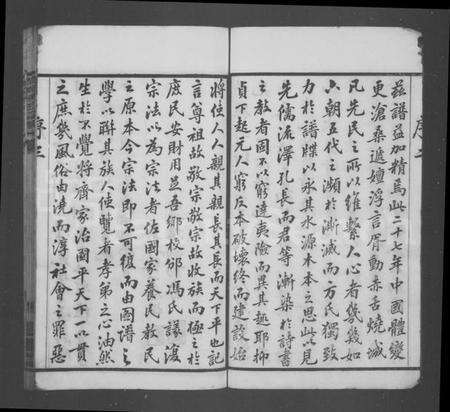 茲譜益加精焉此二十七年中國體變
更滄桑遞嬗浮言胥動赤舌燒城
凡先民之所以維繫人心者幾幾如
六朝五代之瀕於澌滅而方氏獨致
力於譜牒以永其水源木本之思此以見
先儒流澤孔長而君等漸染於詩書
之教者固不以窮達夷險而異其趣耶抑
貞下起元人窮反本破壞終而建設始
序二
將使人人親其親長其長而天下平也記
言尊祖故敬宗敬宗故收族而極之於
庶民安財用足吾鄉校邠馮氏議復
宗法以為宗法者佐國家養民教民
之原本今宗法即不可復而由國譜之
學以聯其族人使覽者孝弟之心油然
生於不覺將齊家治國平天下一以貫
之庶幾風俗由澆而淳社會之罪惡
序三